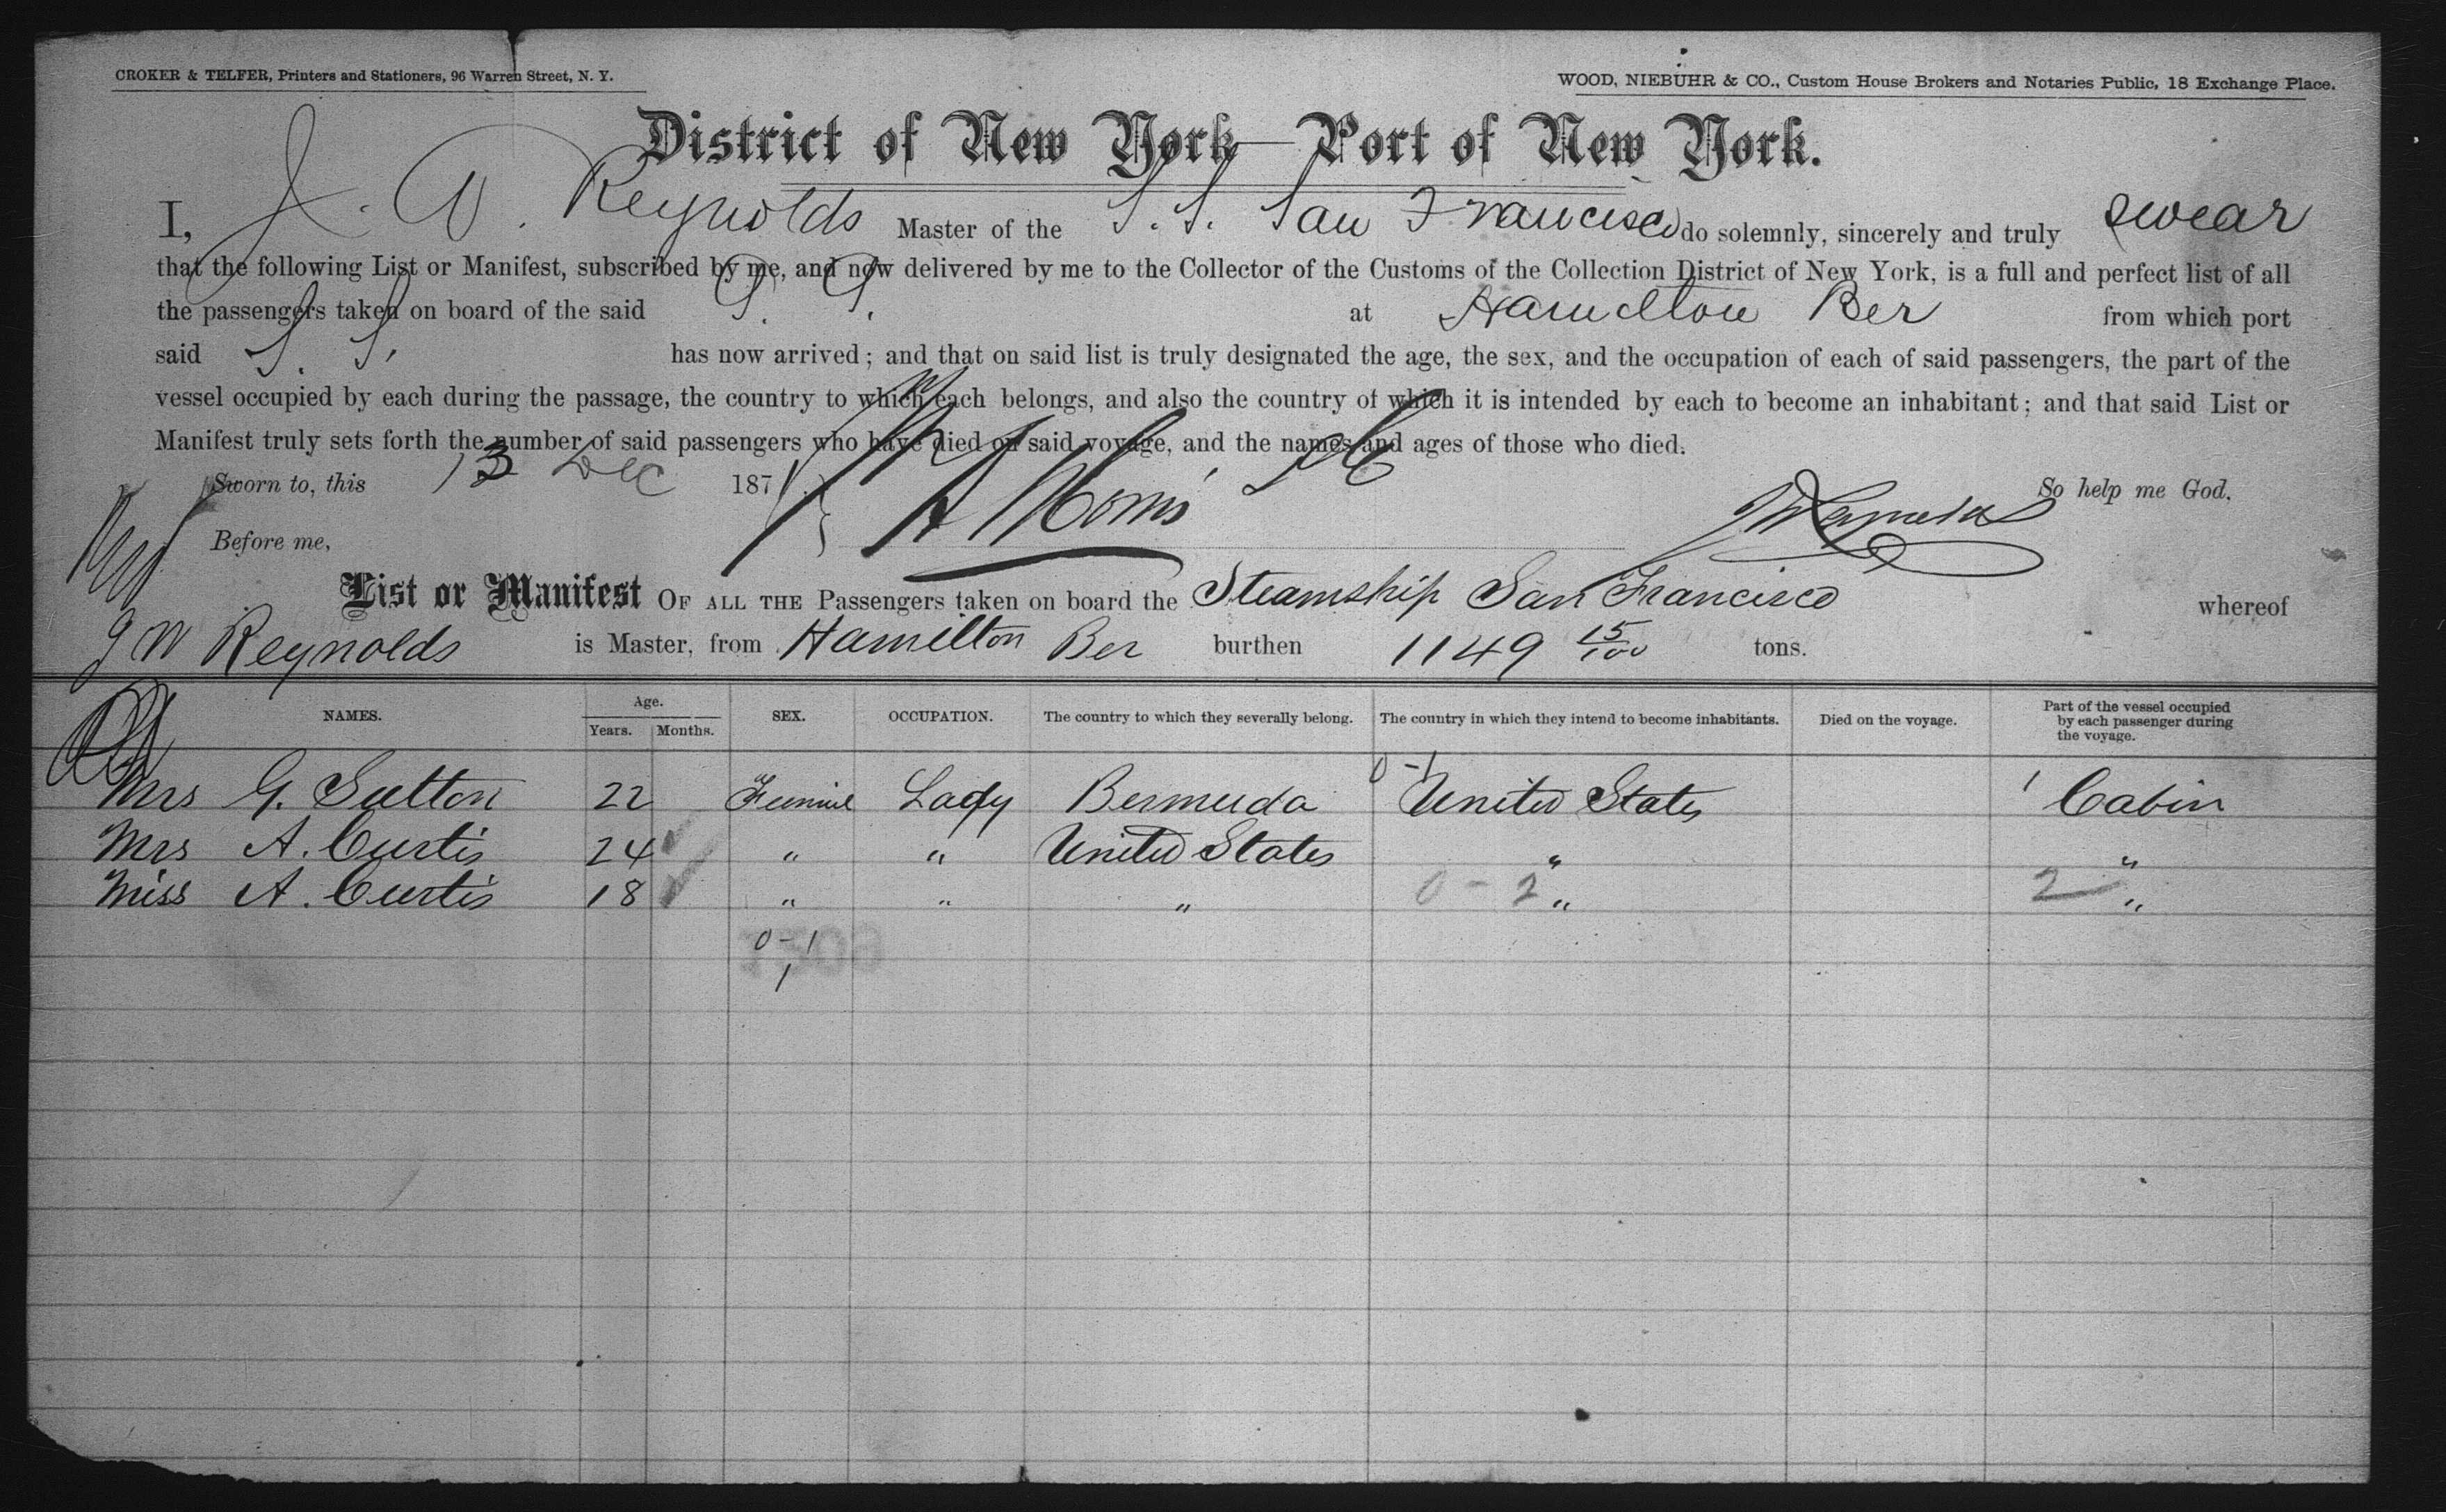 CROKER & TELFER, Printers and Stationers, 96 Warren Street, N. Y.
WOOD, NIEBUHR & CO., Custom House Brokers and Notaries Public, 18 Exchange Place.
District of New York—Port of New York.
I, J. W. Reynolds Master of the S. S. San Francisco do solemnly, sincerely and truly swear
that the following List or Manifest, subscribed by me, and now delivered by me to the Collector of the Customs of the Collection District of New York, is a full and perfect list of all
the passengers taken on board of the said S. S. at Hamilton Ber from which port
said S. S. has now arrived; and that on said list is truly designated the age, the sex, and the occupation of each of said passengers, the part of the
vessel occupied by each during the passage, the country to which each belongs, and also the country of which it is intended by each to become an inhabitant; and that said List or
Manifest truly sets forth the number of said passengers who have died on said voyage, and the names and ages of those who died.
Sworn to, this 13 Dec 187 So help me God.
Before me, JWReynolds
List or Manifest OF ALL THE Passengers taken on board the Steamship San Francisco whereof
J W Reynolds is Master, from Hamilton Ber burthen 1149 15/100 tons.
NAMES. Age. Years. Months. SEX. OCCUPATION. The country to which they severally belong. The country in which they intend to become inhabitants. Died on the voyage. Part of the vessel occupied by each passenger during the voyage.
0-1
Mrs G. Sutton 22 Female Lady Bermuda United States 1 Cabin
Mrs A. Curtis 24 " " United States " "
Miss A. Curtis 18 " " " 0-2 " 2 "
0-1
1